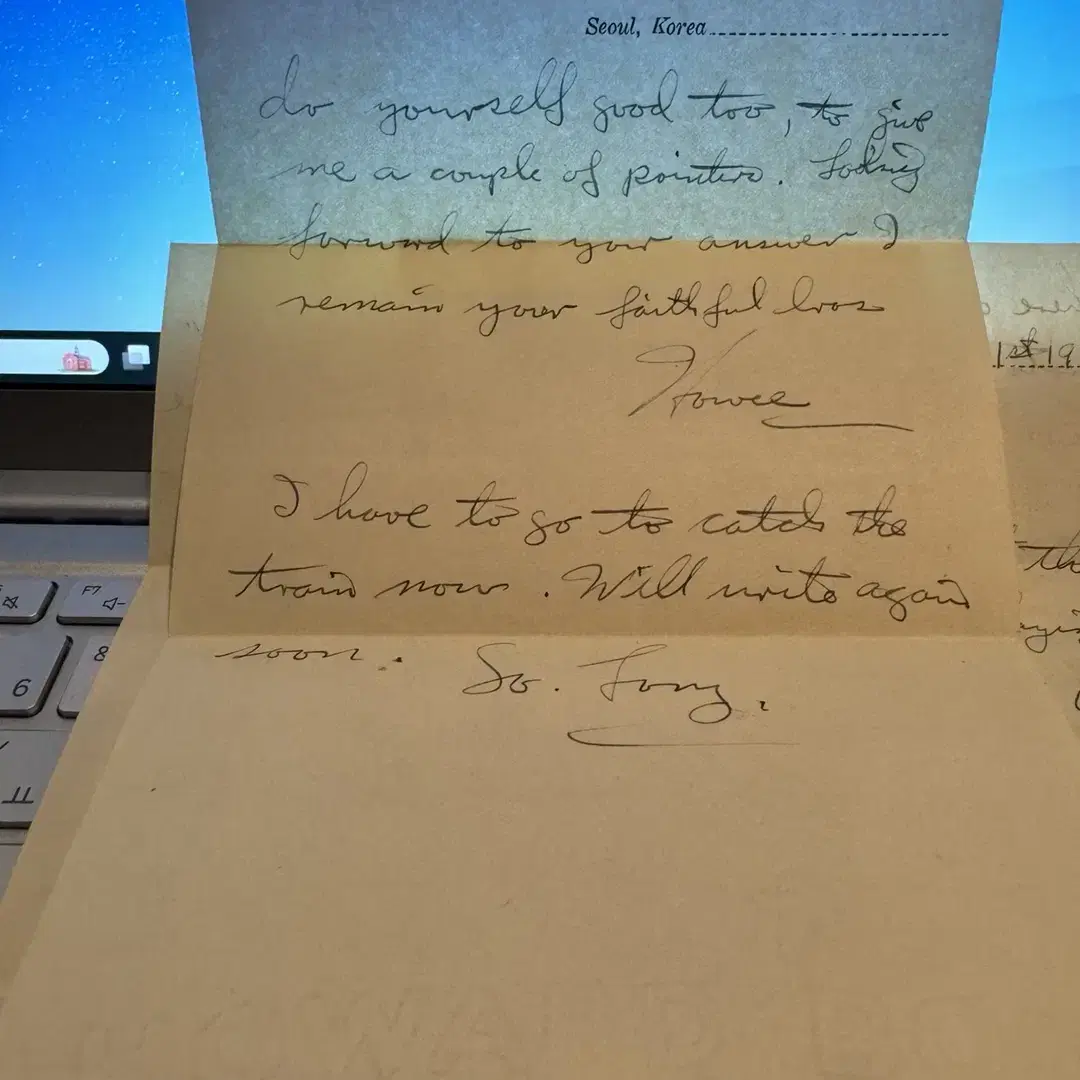 Seoul, Korea
do yourself good too, to give
me a couple of pointers. Looking
forward to your answer I
remain your faithful bros
Howee
I have to go to catch the
train now. Will write again
soon. So. Long.
1st 19
th
F7
6
8
ㅛ